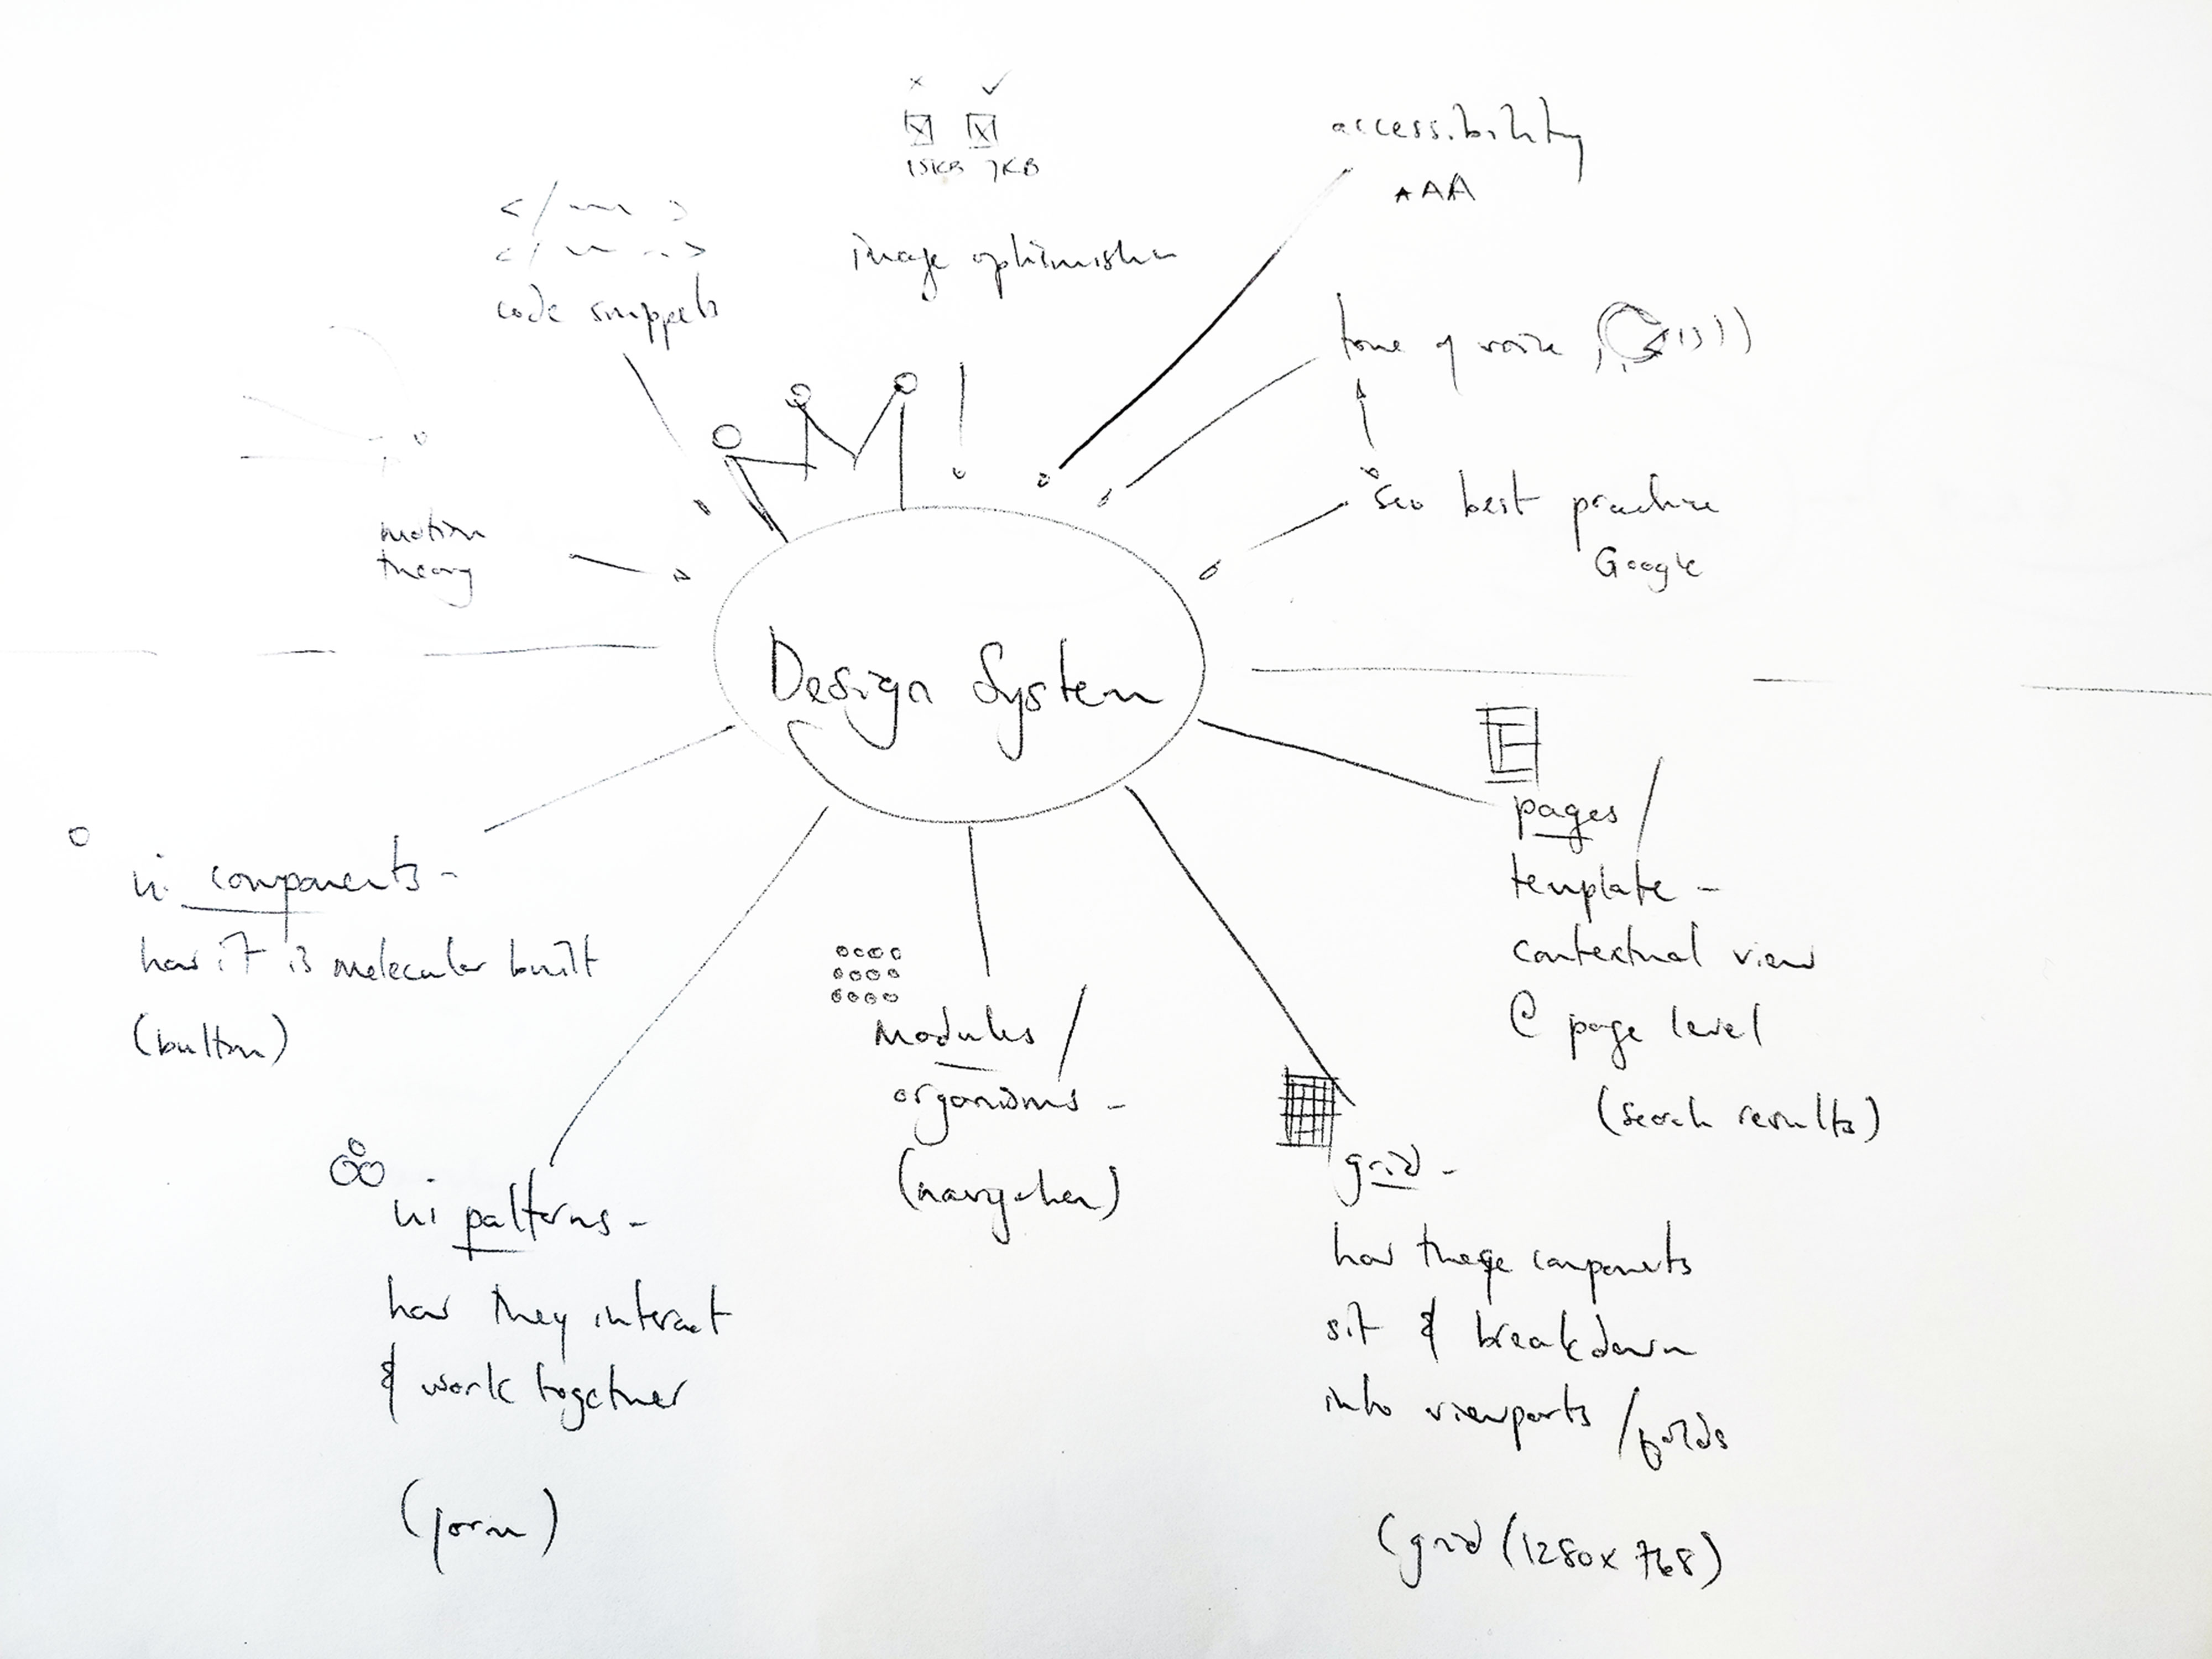 15KB 7KB
image optimisation
accessibility
AAA
code snippets
tone of voice
seo best practice
Google
motion
theory
Design System
ui components -
how it is molecular built
(button)
ui patterns -
how they interact
& work together
(form)
modules /
organisms -
(navigation)
grid -
how these components
sit & breakdown
into viewports / folds
(grid (1280x768)
pages /
template -
contextual view
@ page level
(search results)